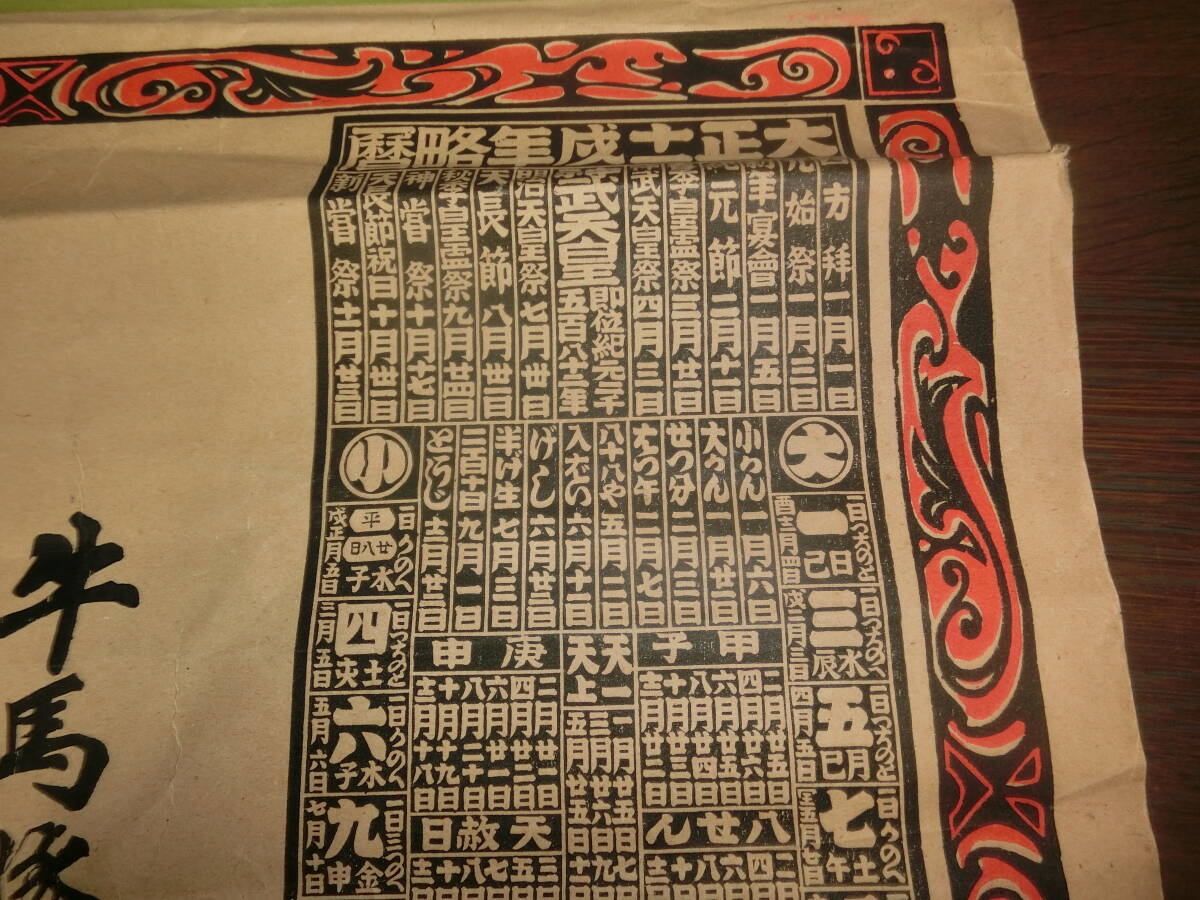 大正十一戌年略暦
四方拝一月一日
元始祭一月三日
新年宴會一月五日
紀元節二月十一日
春季皇霊祭三月廿一日
神武天皇祭四月三日
神武天皇即位紀元二千五百八十二年
明治天皇祭七月卅日
天長節八月卅一日
秋季皇霊祭九月廿四日
神嘗祭十月十七日
天長節祝日十月卅一日
新嘗祭十一月廿三日
大
小かん一月六日
大かん一月廿一日
せつ分二月三日
はつ午二月七日
八十八や五月二日
入ばい六月十一日
げし六月廿二日
半げ生七月三日
二百十日九月一日
とうじ十二月廿二日
小
一
日己
三
水辰
戌二月三日
五
月巳
四月五日
七
土午
平
廿八日
水子
戌正月五日
四
土
三月五日
六
水子
五月六日
九
金申
七月十日
甲子
二月廿五日
四月廿六日
六月廿五日
八月廿四日
十月廿三日
十二月廿二日
天一天上
一月廿五日
三月廿六日
五月廿五日
庚申
二月廿一日
四月廿二日
六月廿一日
八月二十日
十月十九日
十二月十八日
八せん
天赦日
牛馬